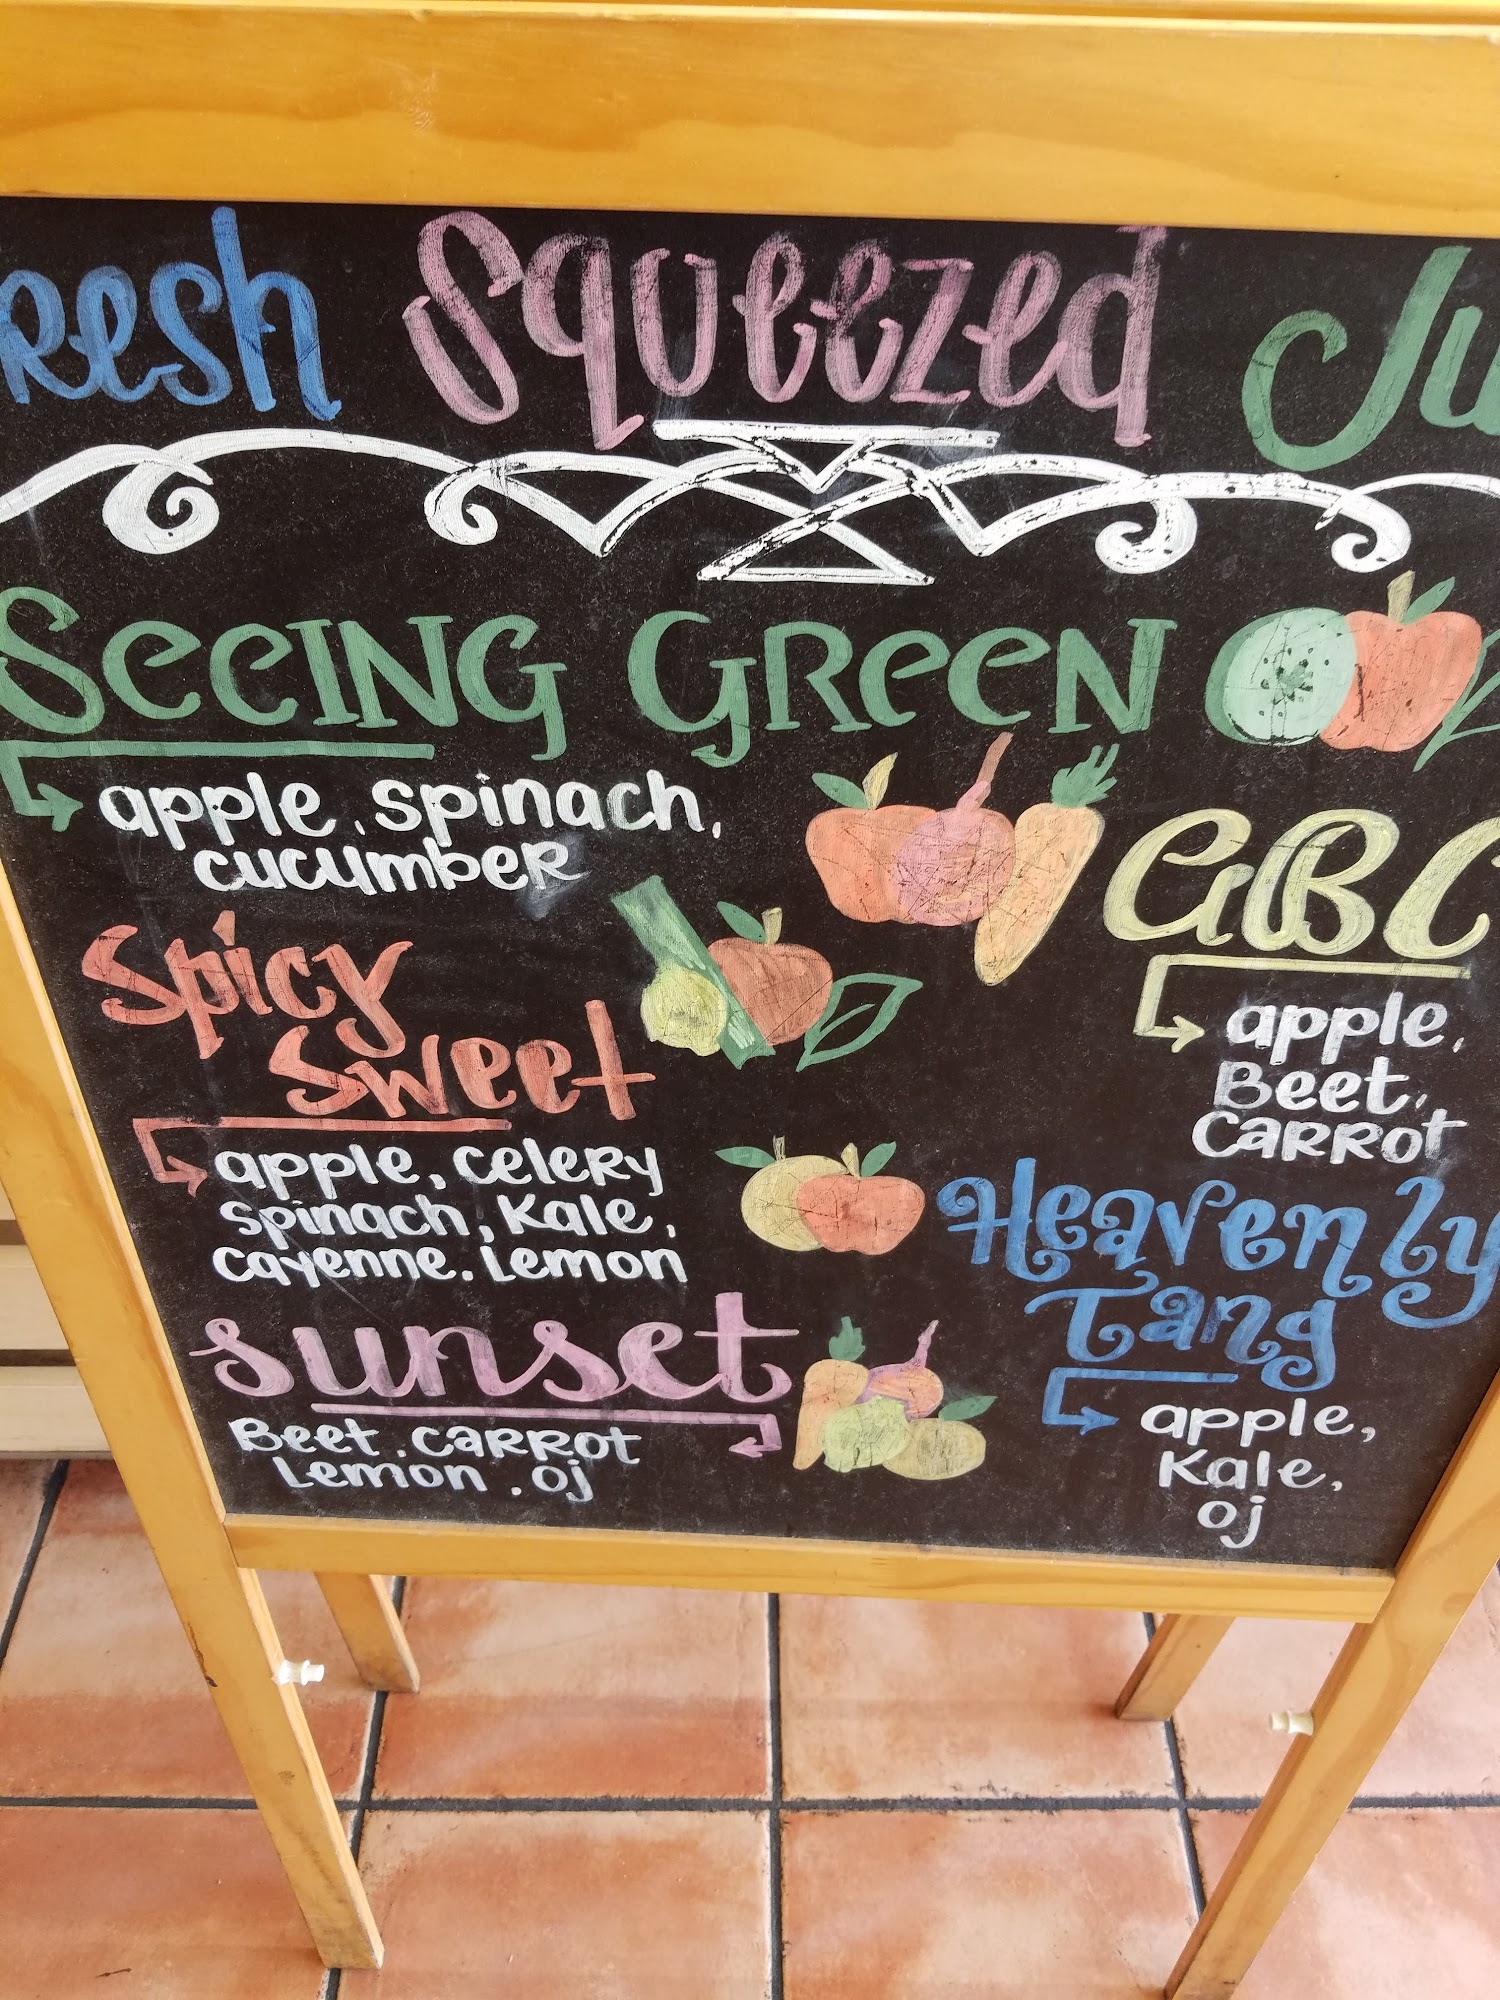 resh Squeezed Ju
Seeing Green
apple, spinach,
cucumber
Spicy
Sweet
apple, celery
spinach, kale,
cayenne. Lemon
sunset
Beet, carrot
Lemon, oj
ABC
apple,
Beet,
carrot
Heavenly
Tang
apple,
Kale,
oj